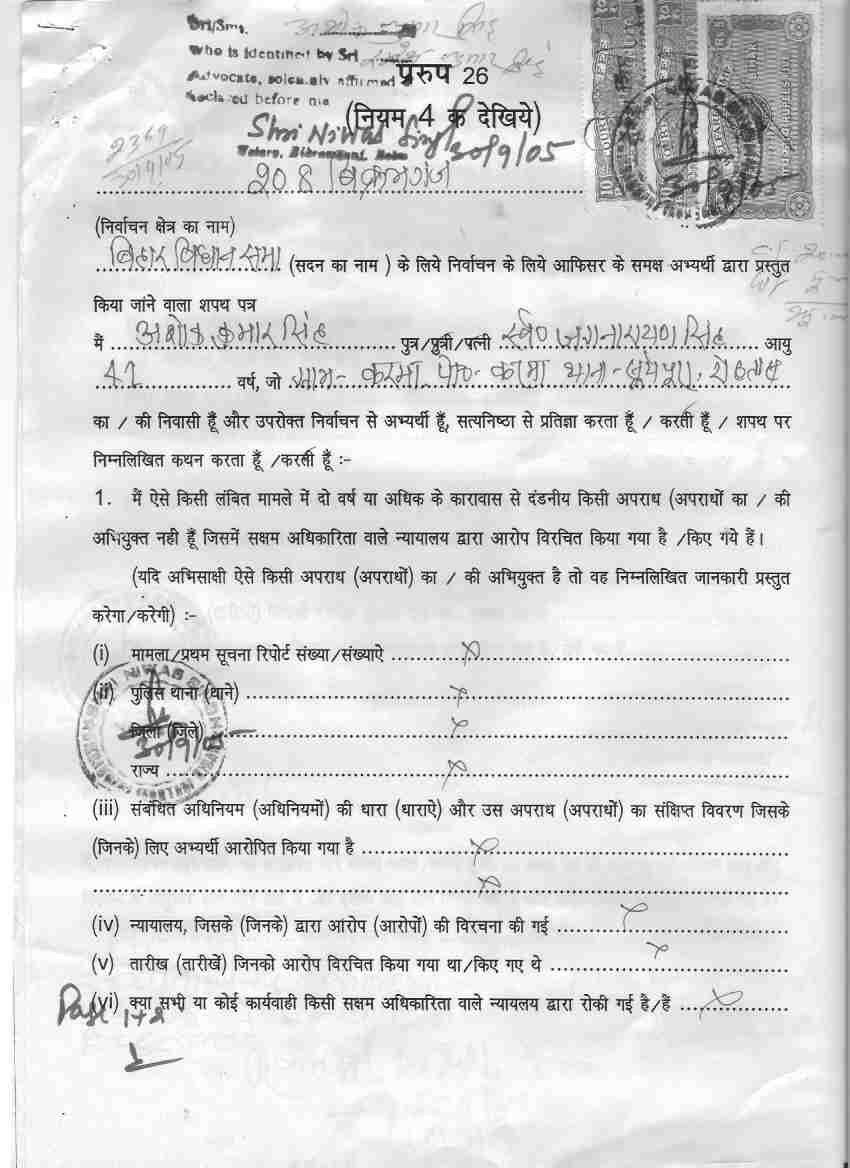 Sri/Smt. अशोक कुमार सिंह
who is identified by Sri कुमार सिंह
Advocate, solemnly affirmed
declared before me
प्ररुप 26
(नियम 4 क देखिये)
Shri Niwas Singh 30/9/05
Notary, Bikramganj, Rohtas
2369
30/9/05
208 बिक्रमगंज
30/9/05
(निर्वाचन क्षेत्र का नाम)
बिहार विधान सभा (सदन का नाम ) के लिये निर्वाचन के लिये आफिसर के समक्ष अभ्यर्थी द्वारा प्रस्तुत
किया जांने वाला शपथ पत्र
मैं अशोक कुमार सिंह पुत्र/प्रुत्री/पत्नी स्व० जगनारायण सिंह आयु
42 वर्ष, जो ग्राम- करमा पो०- करमा थाना- सूर्यपूरा, रोहतास
का / की निवासी हूँ और उपरोक्त निर्वाचन से अभ्यर्थी हूँ, सत्यनिष्ठा से प्रतिज्ञा करता हूँ / करती हूँ / शपथ पर
निम्नलिखित कथन करता हूँ /करती हूँ :-
1. मैं ऐसे किसी लंबित मामले में दो वर्ष या अधिक के कारावास से दंडनीय किसी अपराध (अपराधों का / की
अभियुक्त नही हूँ जिसमें सक्षम अधिकारिता वाले न्यायालय द्वारा आरोप विरचित किया गया है /किए गये हैं।
(यदि अभिसाक्षी ऐसे किसी अपराध (अपराधों) का / की अभियुक्त है तो वह निम्नलिखित जानकारी प्रस्तुत
करेगा/करेगी) :-
(i) मामला/प्रथम सूचना रिपोर्ट संख्या/संख्याऐ x
(ii) पुलिस थाना (थाने) x
जिला (जिले) x
30/9/05
राज्य x
(iii) संबंधित अधिनियम (अधिनियमों) की धारा (धाराऐ) और उस अपराध (अपराधों) का संक्षिप्त विवरण जिसके
(जिनके) लिए अभ्यर्थी आरोपित किया गया है x
x
(iv) न्यायालय, जिसके (जिनके) द्वारा आरोप (आरोपों) की विरचना की गई x
(v) तारीख (तारीखें) जिनको आरोप विरचित किया गया था/किए गए थे x
(vi) क्या सभी या कोई कार्यवाही किसी सक्षम अधिकारिता वाले न्यायलय द्वारा रोकी गई है/हैं x
Page 1+2